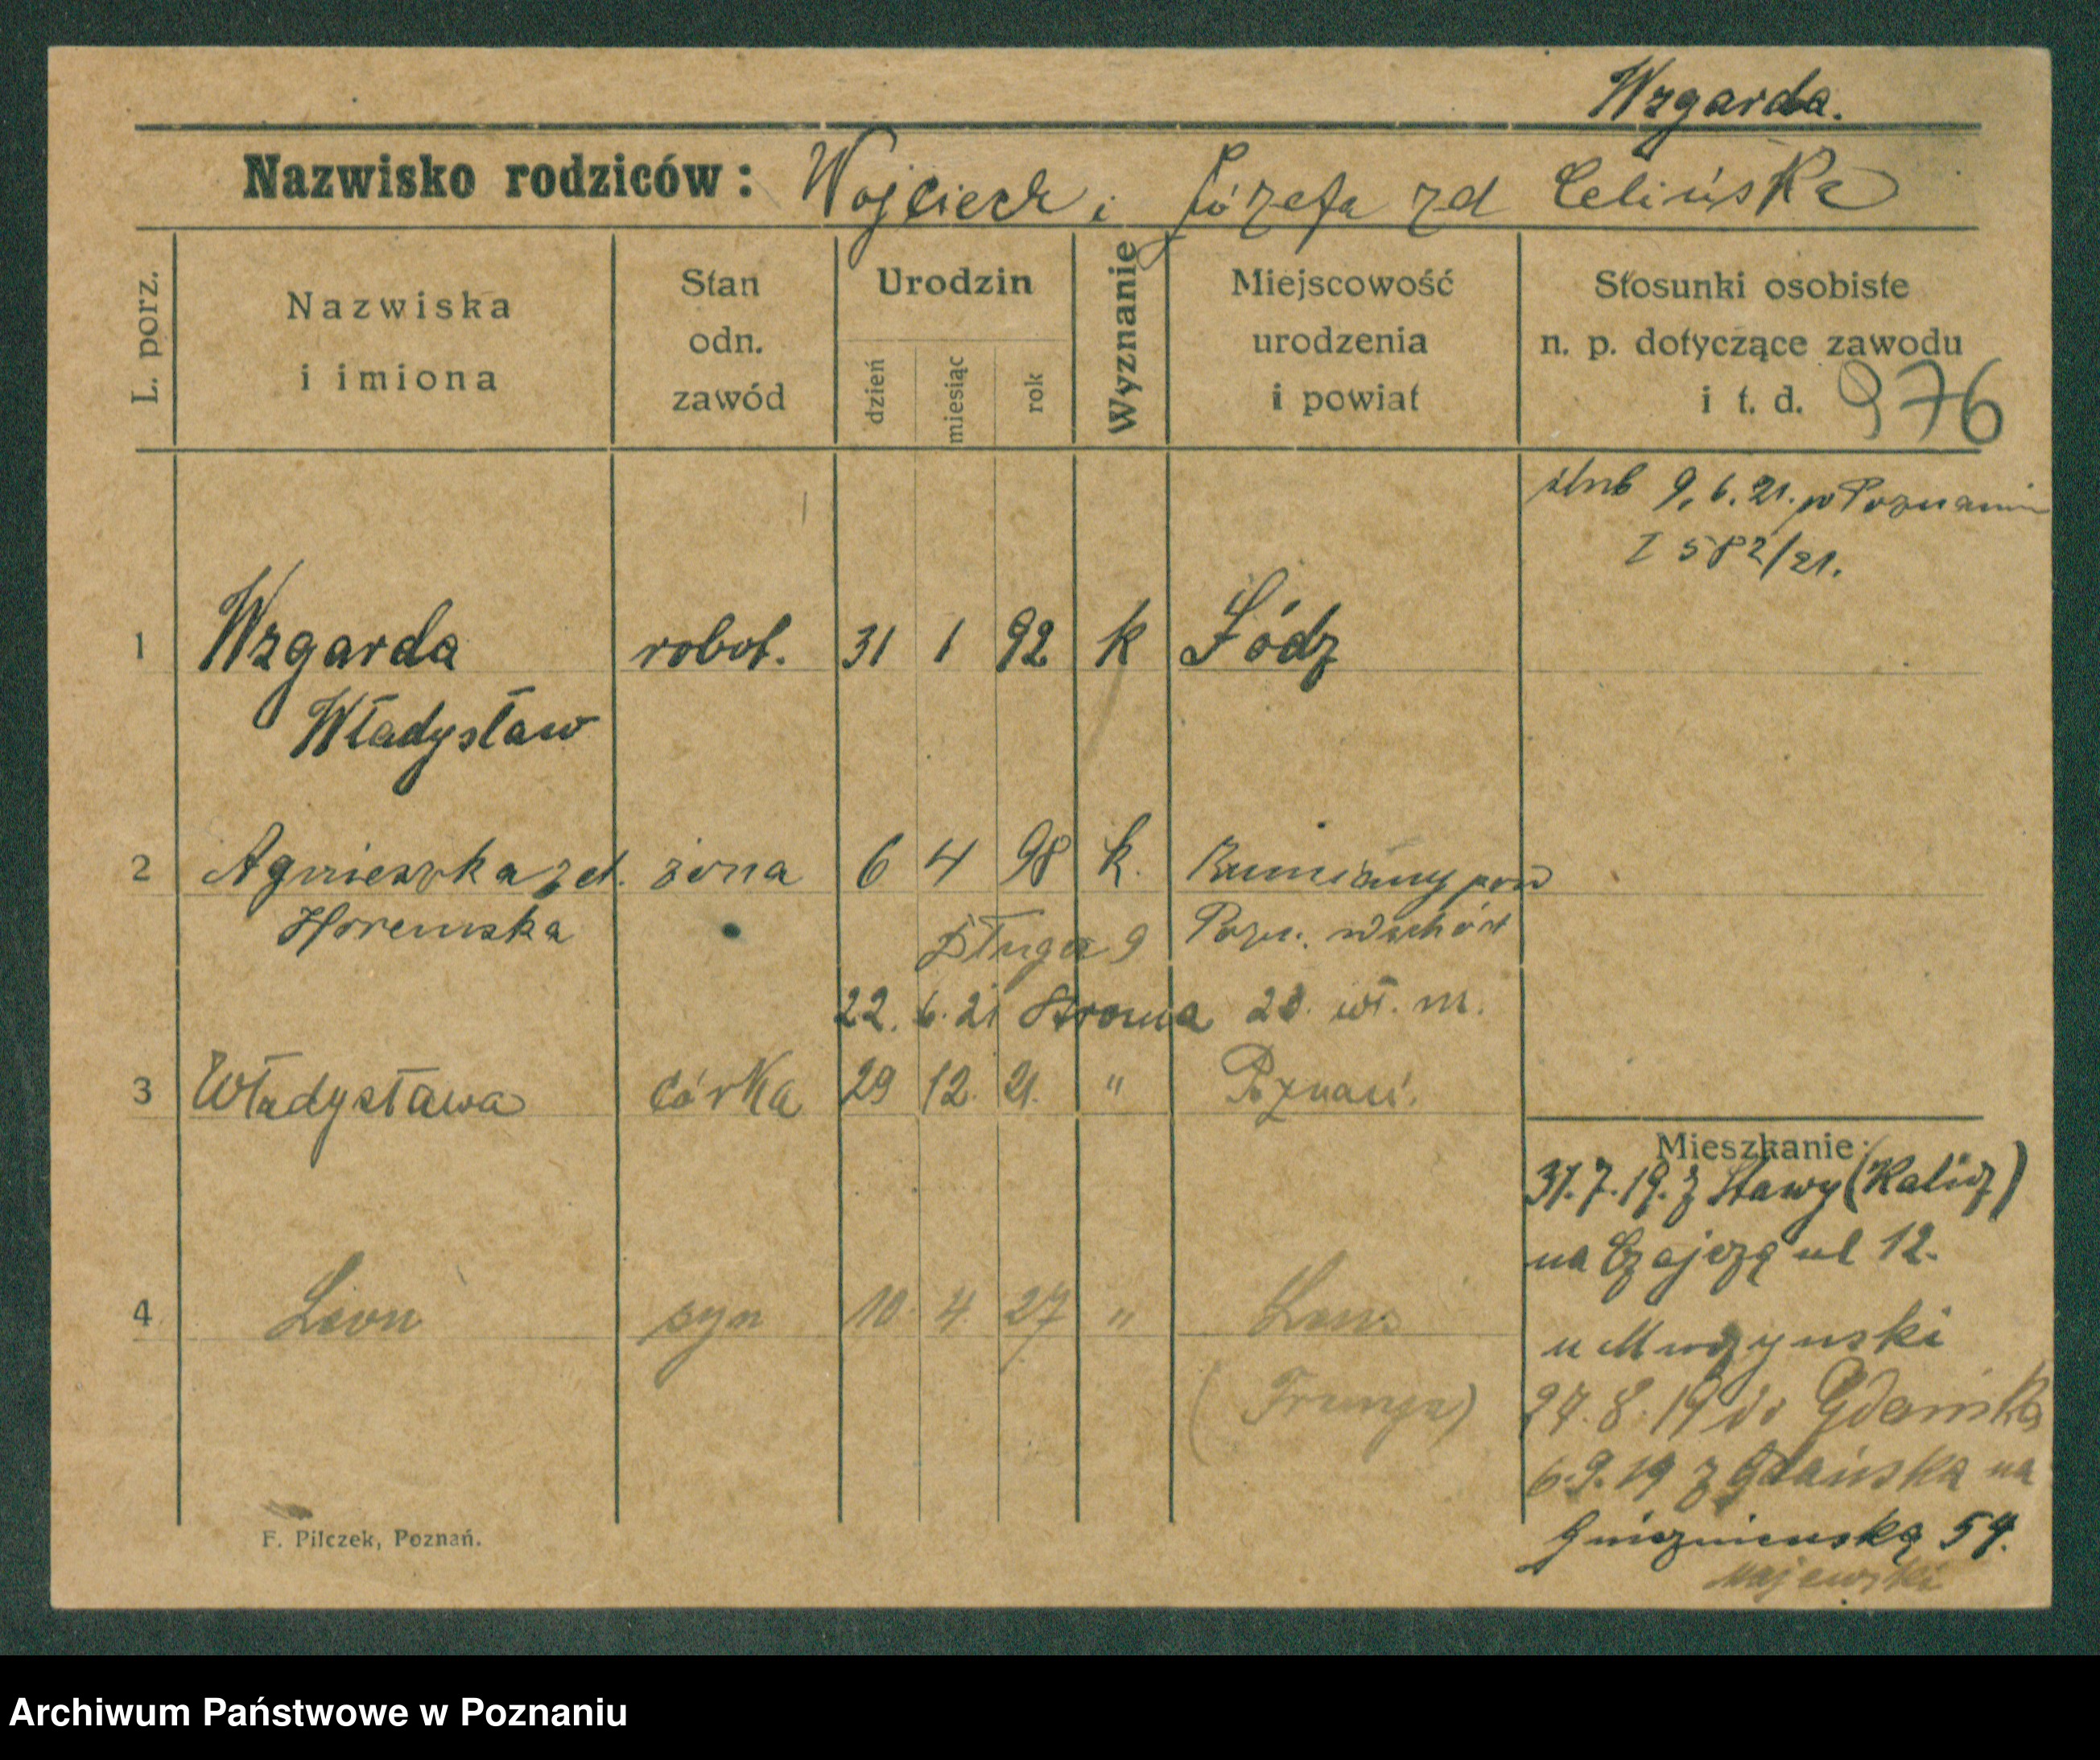 Wzgarda.
Nazwisko rodziców: Wojciech i Józefa zd Celińska
L. porz.
Nazwiska
i imiona
Stan
odn.
zawód
Urodzin
dzień
miesiąc
rok
Wyznanie
Miejscowość
urodzenia
i powiat
Stosunki osobiste
n. p. dotyczące zawodu
i t. d.
976
ślub 9.6.21. w Poznaniu
I 582/21.
1 Wzgarda robot. 31 1 92 k Łódz
Władysław
2 Agnieszka zd. żona 6 4 98 k. pow
Pozn. wschód
Długa 9
22. 6. 21 Stroma 20. wł. m.
3 Władysława córka 29 12. 21. " Poznań.
4 Leon syn 10. 4. 27 " Lens
(Francya)
Mieszkanie:
31.7.19. z Stawy (Kalisz)
na Czajczą ul 12.
u
27.8.19 do Gdańska
6.9.19 z Gdańska na
Gnieznienską 54.
Majewski
F. Pilczek, Poznań.
Archiwum Państwowe w Poznaniu